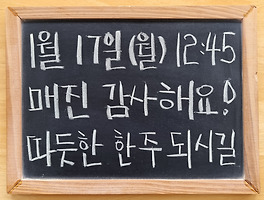 1월 17일(월) 12:45
매진 감사해요!
따듯한 한주 되시길